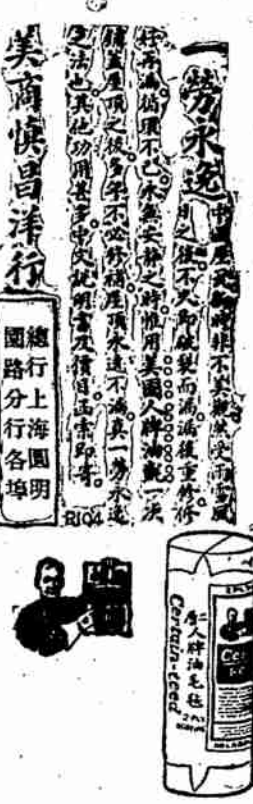 一勞永逸
中國屋瓦新時非不美觀然受雨雪風
日之後不久即破裂而漏漏後重修修
好再漏循環不已永無安靜之時惟用美國人牌油氈一次
舖蓋屋頂之後多年不必修補屋頂永遠不漏真一勞永逸
之法也其他功用甚多中文說明書及價目函索即寄
R104
美商慎昌洋行
總行上海圓明
園路分行各埠
人牌油毛毡
Certain-teed